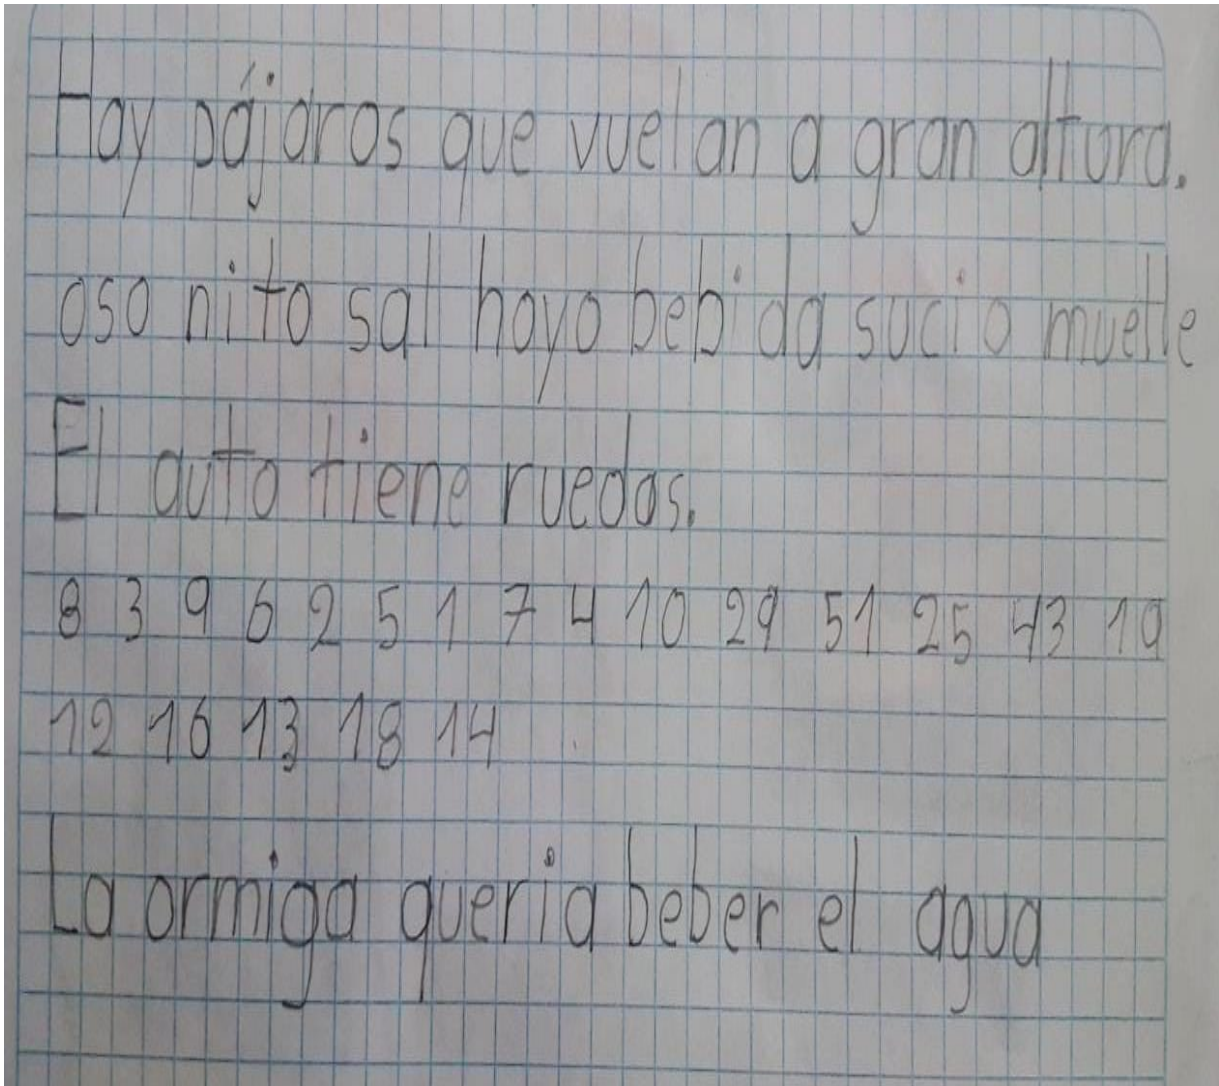 Hay pájaros que vuelan a gran altura.
oso nito sal hoyo bebida sucio muelle
El auto tiene ruedas.
8 3 9 6 2 5 1 7 4 10 29 51 25 43 19
12 16 13 18 14
La ormiga queria beber el agua